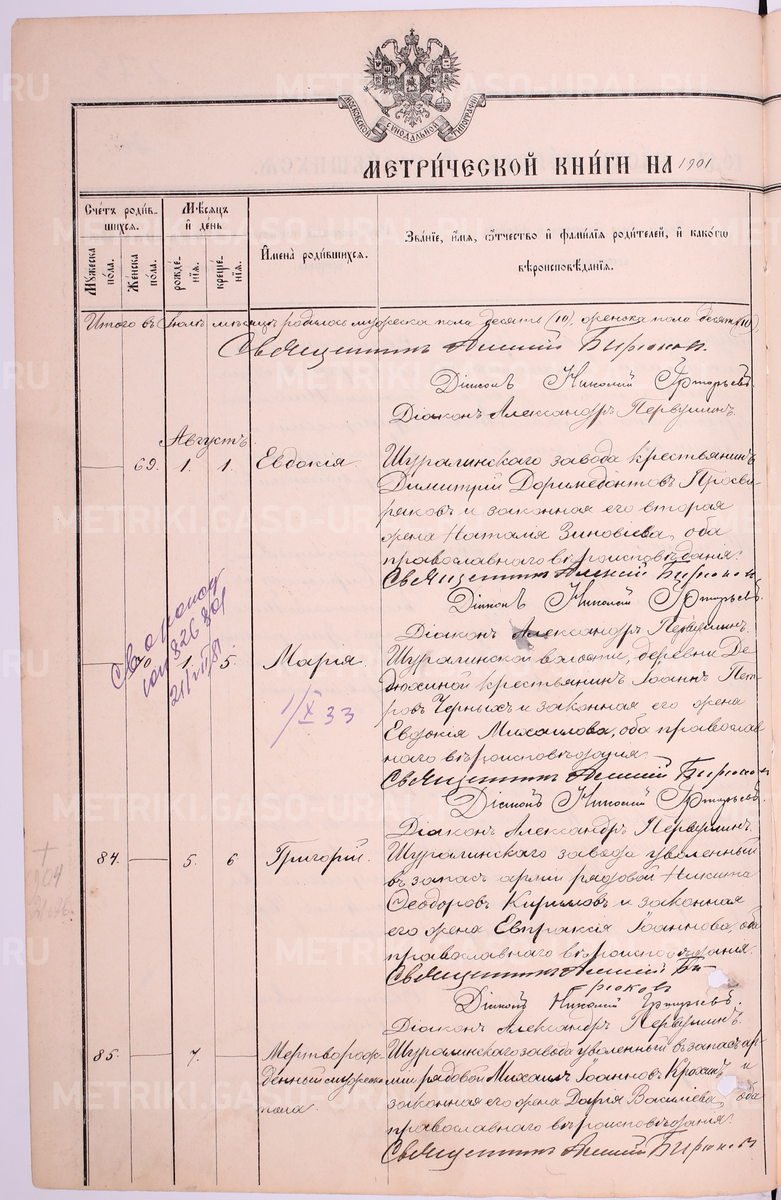 МОСКОВСКОЙ СѴНОДАЛЬНОЙ ТИПОГРАФІИ
МЕТРИ́ЧЕСКОЙ КНИ́ГИ НА 1901
Счетъ роди́вшихся.
Мѣсяцъ и де́нь
Имена̀ роди́вшихся.
Зва́нїе, и́мя, ѻ́тчество и фами́лїя роди́телей, и како́гѡ вѣроисповѣ́данїя.
Му́жеска по́ла.
Же́нска по́ла.
рожде́нїя.
креще́нїя.
Итого въ Іюлѣ мѣсяцѣ родилось мужеска пола десять (10), женска пола десять (10).
Священникъ Алексій Бирюковъ.
Діаконъ Николай Григорьевъ
Діаконъ Александръ Первушинъ.
Августъ.
69. 1. 1. Евдокія.
Шуралинскаго завода крестьянинъ
Димитрій Доримедонтовъ Просви-
ряковъ и законная его вторая
жена Наталія Зиновіева, оба
православнаго вѣроисповѣданія.
Священникъ Алексій Бирюковъ
Діаконъ Николай Григорьевъ.
Діаконъ Александръ Первушинъ.
70 1. 5. Марія.
21/VII 51
1/X 33
Шуралинской волости, деревни Де-
дюхиной крестьянинъ Іоаннъ Пет-
ровъ Черныхъ и законная его жена
Евдокія Михаилова, оба православ-
наго вѣроисповѣданія
Священникъ Алексій Бирюковъ
Діаконъ Николай Григорьевъ.
Діаконъ Александръ Первушинъ.
84. 5. 6 Григорій.
† 1904
Шуралинскаго завода уволенный
въ запасъ арміи рядовой Никита
Ѳеодоровъ Кирилловъ и законная
его жена Евпраксія Іоаннова, оба
православнаго вѣроисповѣданія.
Священникъ Алексій Би-
рюковъ
Діаконъ Николай Григорьевъ.
Діаконъ Александръ Первушинъ.
85. 7. Мертворож-
денный мужеска
пола.
Шуралинскаго завода уволенный въ запасъ ар-
міи рядовой Михаилъ Іоанновъ и
законная его жена Дарія Василіева, оба
православнаго вѣроисповѣданія.
Священникъ Алексій Бирюковъ
METRIKI.GASO-URAL.RU